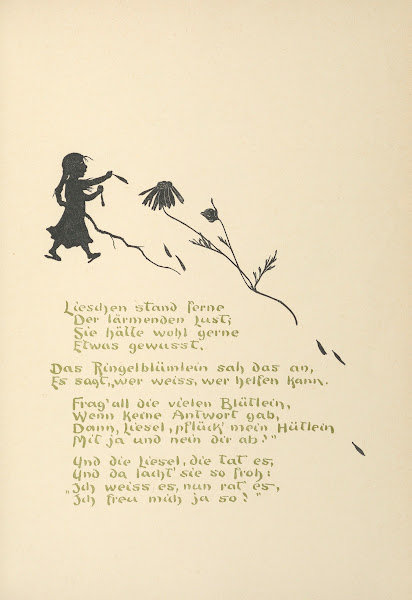 Lieschen stand ferne
Der lärmenden Lust;
Sie hätte wohl gerne
Etwas gewusst.
Das Ringelblümlein sah das an,
Es sagt „wer weiss, wer helfen kann.
Frag' all die vielen Blütlein,
Wenn keine Antwort gab,
Dann, Liesel, pflück' mein Hütlein
Mit ja und nein dir ab!"
Und die Liesel, die tat es,
Und da lacht' sie so froh:
"Ich weiss es, nun rat es,
"Ich freu mich ja so!"